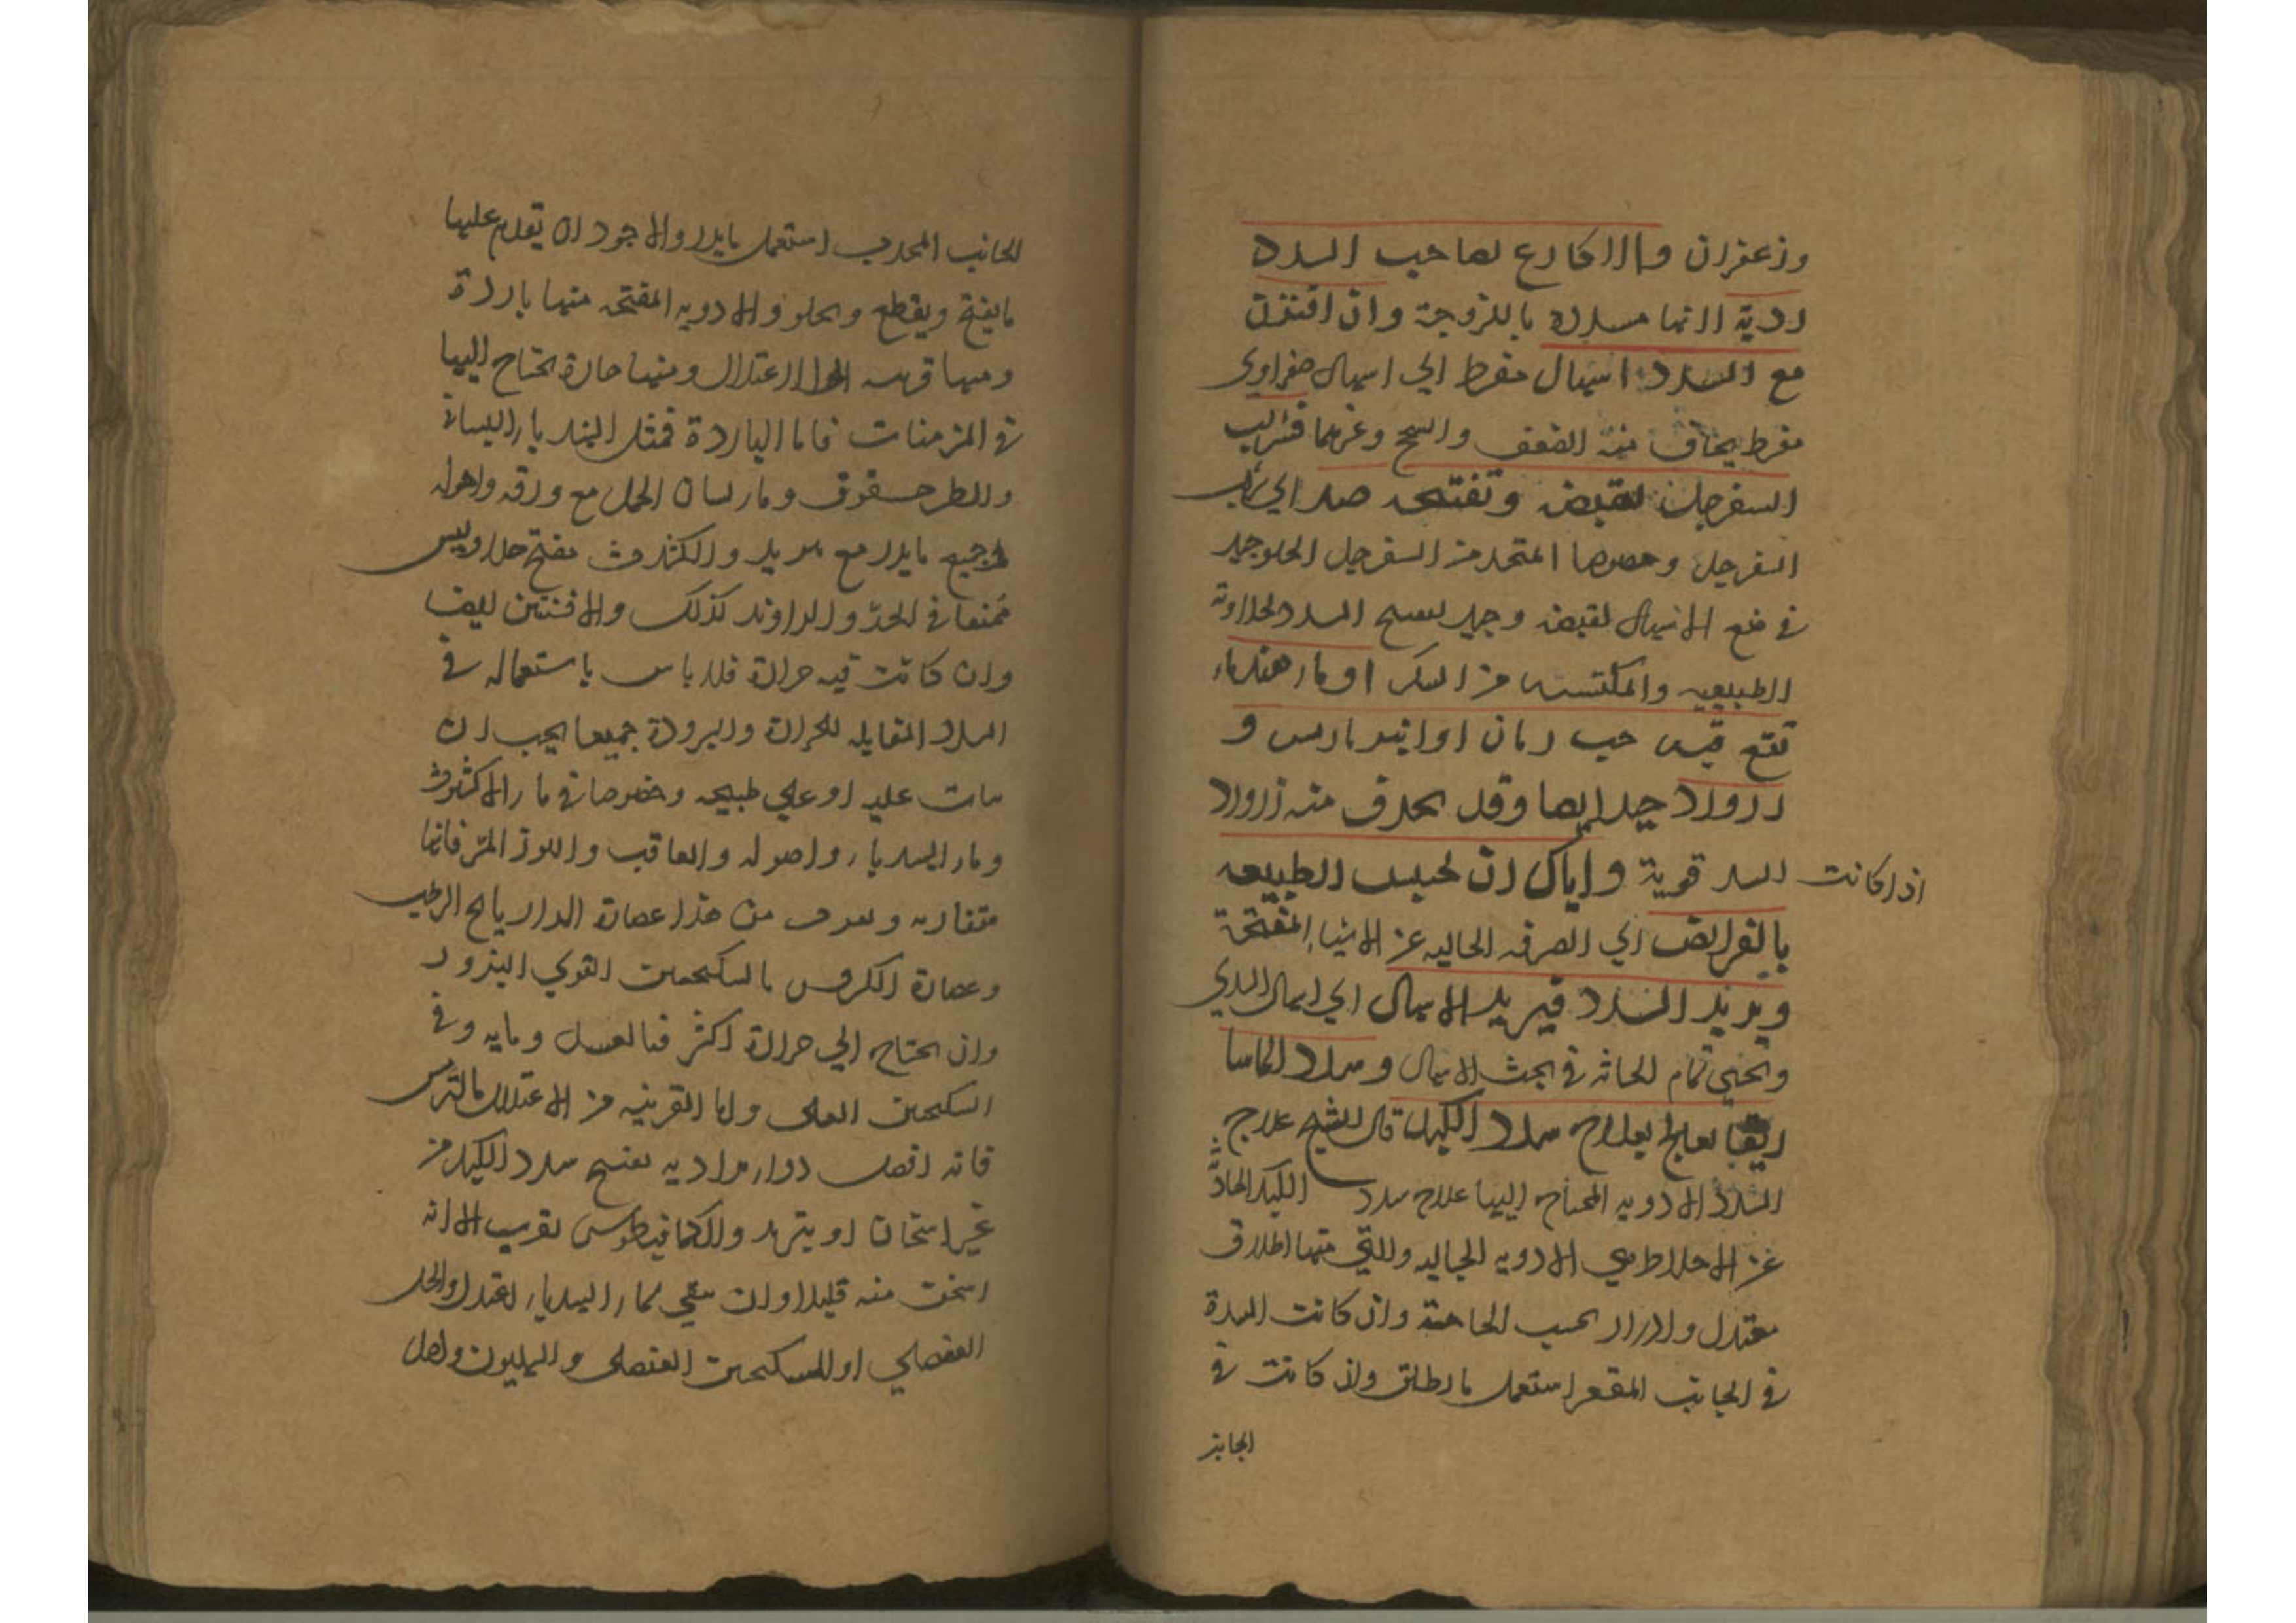 وزعفران والاكارع لصاحب السدد
ردية لانها مسددة باللزوجة وان اقترن
مع السدد اسهال مفرط اي اسهال صفراوي
مفرط يخاف منه الضعف والسحج وغيرهما فشراب
السفرجل لقبضه وتفتيحه
السفرجل وخصوصا المتخذ من السفرجل الحلو جيد
في منع الاسهال لقبضه وجيد لتفتيح السدد لحلاوته
الطبيعيه والمكتسبه من السكر او ماء هندباء
نقع فيه حب رمان او انبرباريس و
زرورد جيد ايضا وقد يحذف منه زرورد
اذا كانت السدد قوية واياك ان تحبس الطبيعه
بالقوابض اي الصرفه الخاليه عن الاشياء المفتحة
ويزيد السدد فيزيد الاسهال اي اسهال الذي
تمام في بحث الاسهال وسدد الماساريقا
تعالج بعلاج سدد الكبد قال الشيخ علاج
السدد الادويه المحتاج اليها علاج سدد الكبد الحادثة
عن الاخلاط هي الادويه الجاليه والتي منها اطلاق
معتدل وادرار بحسب الحاجة وان كانت السدة
في الجانب المقعر استعمل ما يطلق وان كانت في
الجانب
الجانب المحدب استعمل ما يدر والاجود ان تقدم عليها
ما يفتح ويقطع ويجلو والادويه المفتحه منها باردة
ومنها قريبه الي الاعتدال ومنها حارة يحتاج اليها
في المزمنات فاما الباردة فمثل الهندباء البستاني
والطرحشقوق وماء لسان الحمل مع ورقه واصوله
وجميع ما يدر مع تبريد والكشوث مفتح جلا وليس
ممعنا في الحر والراوند كذلك والافسنتين ايضا
وان كانت فيه حرارة فلا باس باستعماله في
السدد المقابله للحرارة والبرودة جميعا يجب ان
عليه او علي طبيخه وخصوصا في ماء الاكشوث
وماء الهندباء واصوله والغافت واللوز المر فانها
متقاربه من هذا عصارة الرازيانج الرطب
وعصارة الكرفس بالسكنجبين القوي البزور
وان احتاج الي حرارة اكثر فبالعسل ومايه وفي
السكنجبين العسلي واما القريبه من الاعتدال كالترمس
فانه افضل دواء يراد به تفتيح سدد الكبد من
غير اسخان او تبريد والكمافيطوس يقرب الا انه
اسخن منه قليلا وان سقي بماء الهندباء اعتدل والخل
العنصلي او السكنجبين العنصلي والهليون واصل